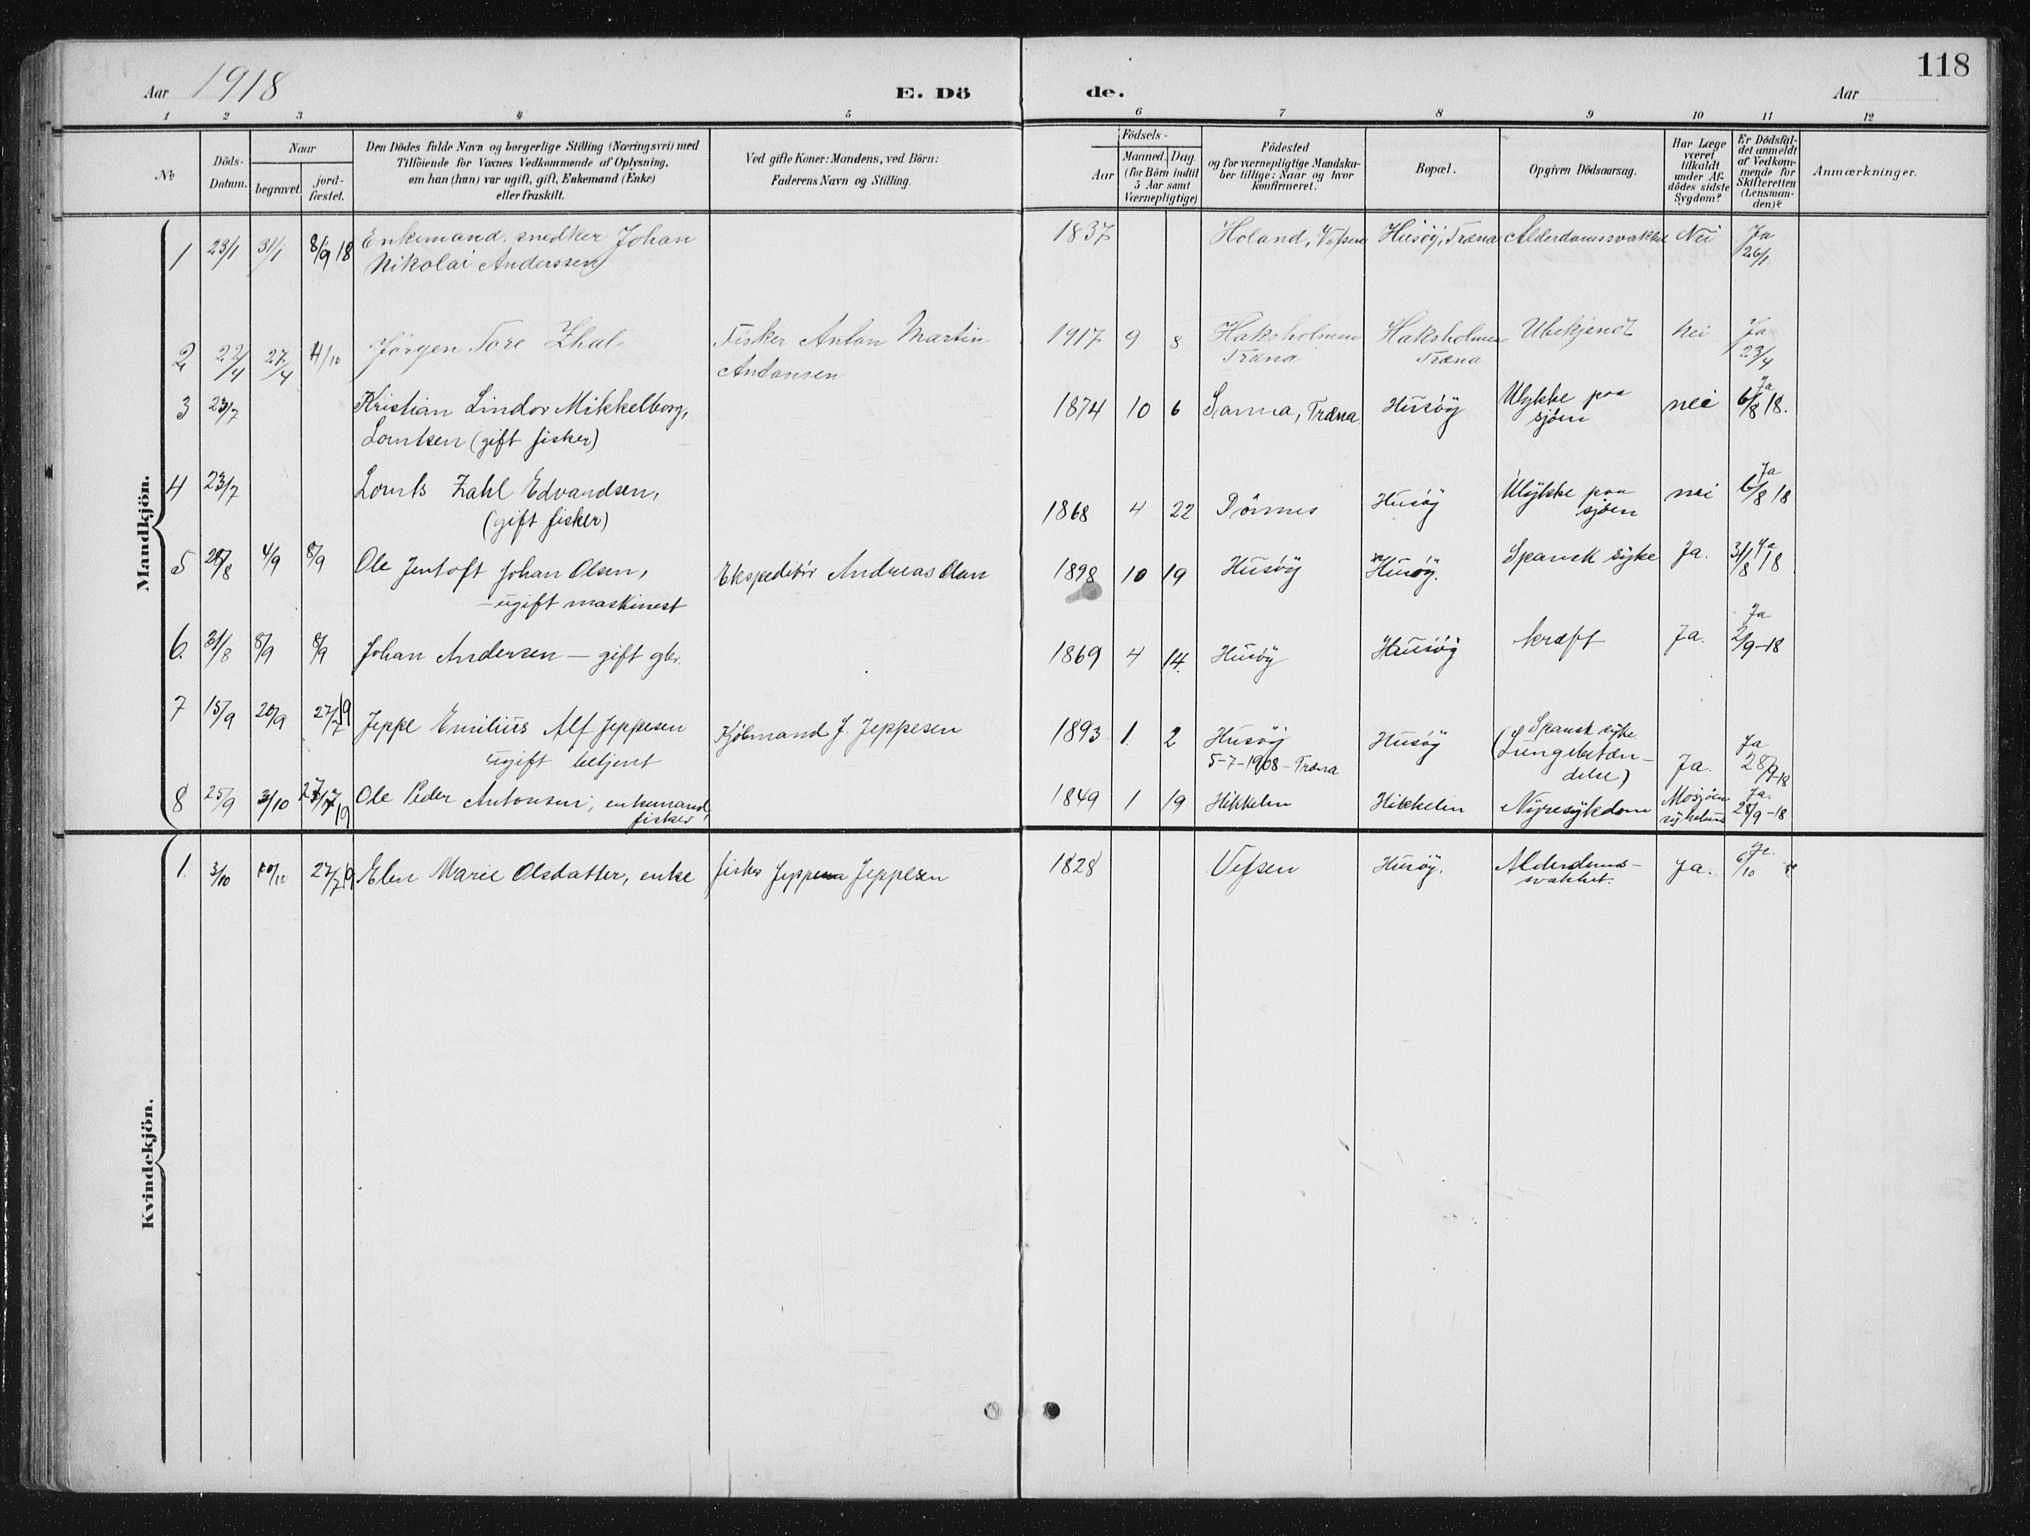 118
Aar 1918 E. Dö de. Aar
1 2 3 4 5 6 7 8 9 10 11 12
No
Döds-
Datum.
Naar
begravet.
jord-
fæstet.
Den Dödes fulde Navn og borgerlige Stilling (Næringsvei) med
Tilföiende for Voxnes Vedkommende af Oplysning,
om han (hun) var ugift, gift, Enkemand (Enke)
eller fraskilt.
Ved gifte Koner: Mandens, ved Börn:
Faderens Navn og Stilling.
Födsels-
Aar
Maaned. Dag.
(for Börn indtil
5 Aar samt
Værnepligtige)
Födested
og for værnepligtige Mandska-
ber tillige: Naar og hvor
konfirmeret.
Bopæl.
Opgiven Dödsaarsag.
Har Læge
været
tilkaldt
under Af-
dödes sidste
Sygdom?
Er Dödsfal-
det anmeldt
af Vedkom-
mende for
Skifteretten
(Lensman-
den)?
Anmærkninger.
Mandkjön.
1 23/1 31/1 8/9 18 Enkemand, snedker Johan
Nikolai Anderssen
1837 Holand, Vefsen Husöy, Træna Alderdomssvakhet Nei Ja
26/1
2 22/4 27/4 4/10 Jørgen Tore Zhal Fisker Anton Martin
Antonsen
1917 9 8 Haksholmen
Træna
Haksholmen
Træna
Ubekjendt nei Ja
23/4
3 23/7 Kristian Lindor Mikkelborg,
Lorntsen (gift fisker)
1874 10 6 Sanna, Træna. Husöy Ulykke paa
sjöen
nei Ja
6/8 18.
4 23/7 Lornts Zahl Edvardsen,
(gift fisker)
1868 4 22 Dönnes Husöy Ulykke paa
sjöen
nei Ja
6/8 18
5 28/8 4/9 8/9 Ole Jentoft Johan Olsen,
- ugift maskinest
Ekspeditör Andreas Olsen
1898 10 19 Husöy Husöy. Spansk syke Ja. Ja
31/8 18
6. 31/8 8/9 8/9 Johan Andersen - gift gbr.
1869 4 14. Husöy Husöy kræft Ja. Ja
2/9-18
7 15/9 20/9 27/7 19 Jeppe Emilius Alf Jeppesen
ugift betjent
Kjöbmand J. Jeppesen
1893 1. 2 Husöy
5-7-1908 - Træna
Husöy Spansk syke
(Lungebetæn-
delse)
Ja. Ja
28/9-18
8 25/9 3/10 27/7 19 Ole Peder Antonsen, enkemand,
fisker
1849 1 19 Hikkelen Hikkelen Nyresykdom Mosjöen
sykehus
Ja.
28/9-18
Kvindekjön.
1. 3/10 10/10 27/7 19 Elen Marie Olsdatter, enke fisker Jeppe Jeppesen
1828 Vefsen Husöy. Alderdoms-
svakhet.
Ja. Ja.
6/10